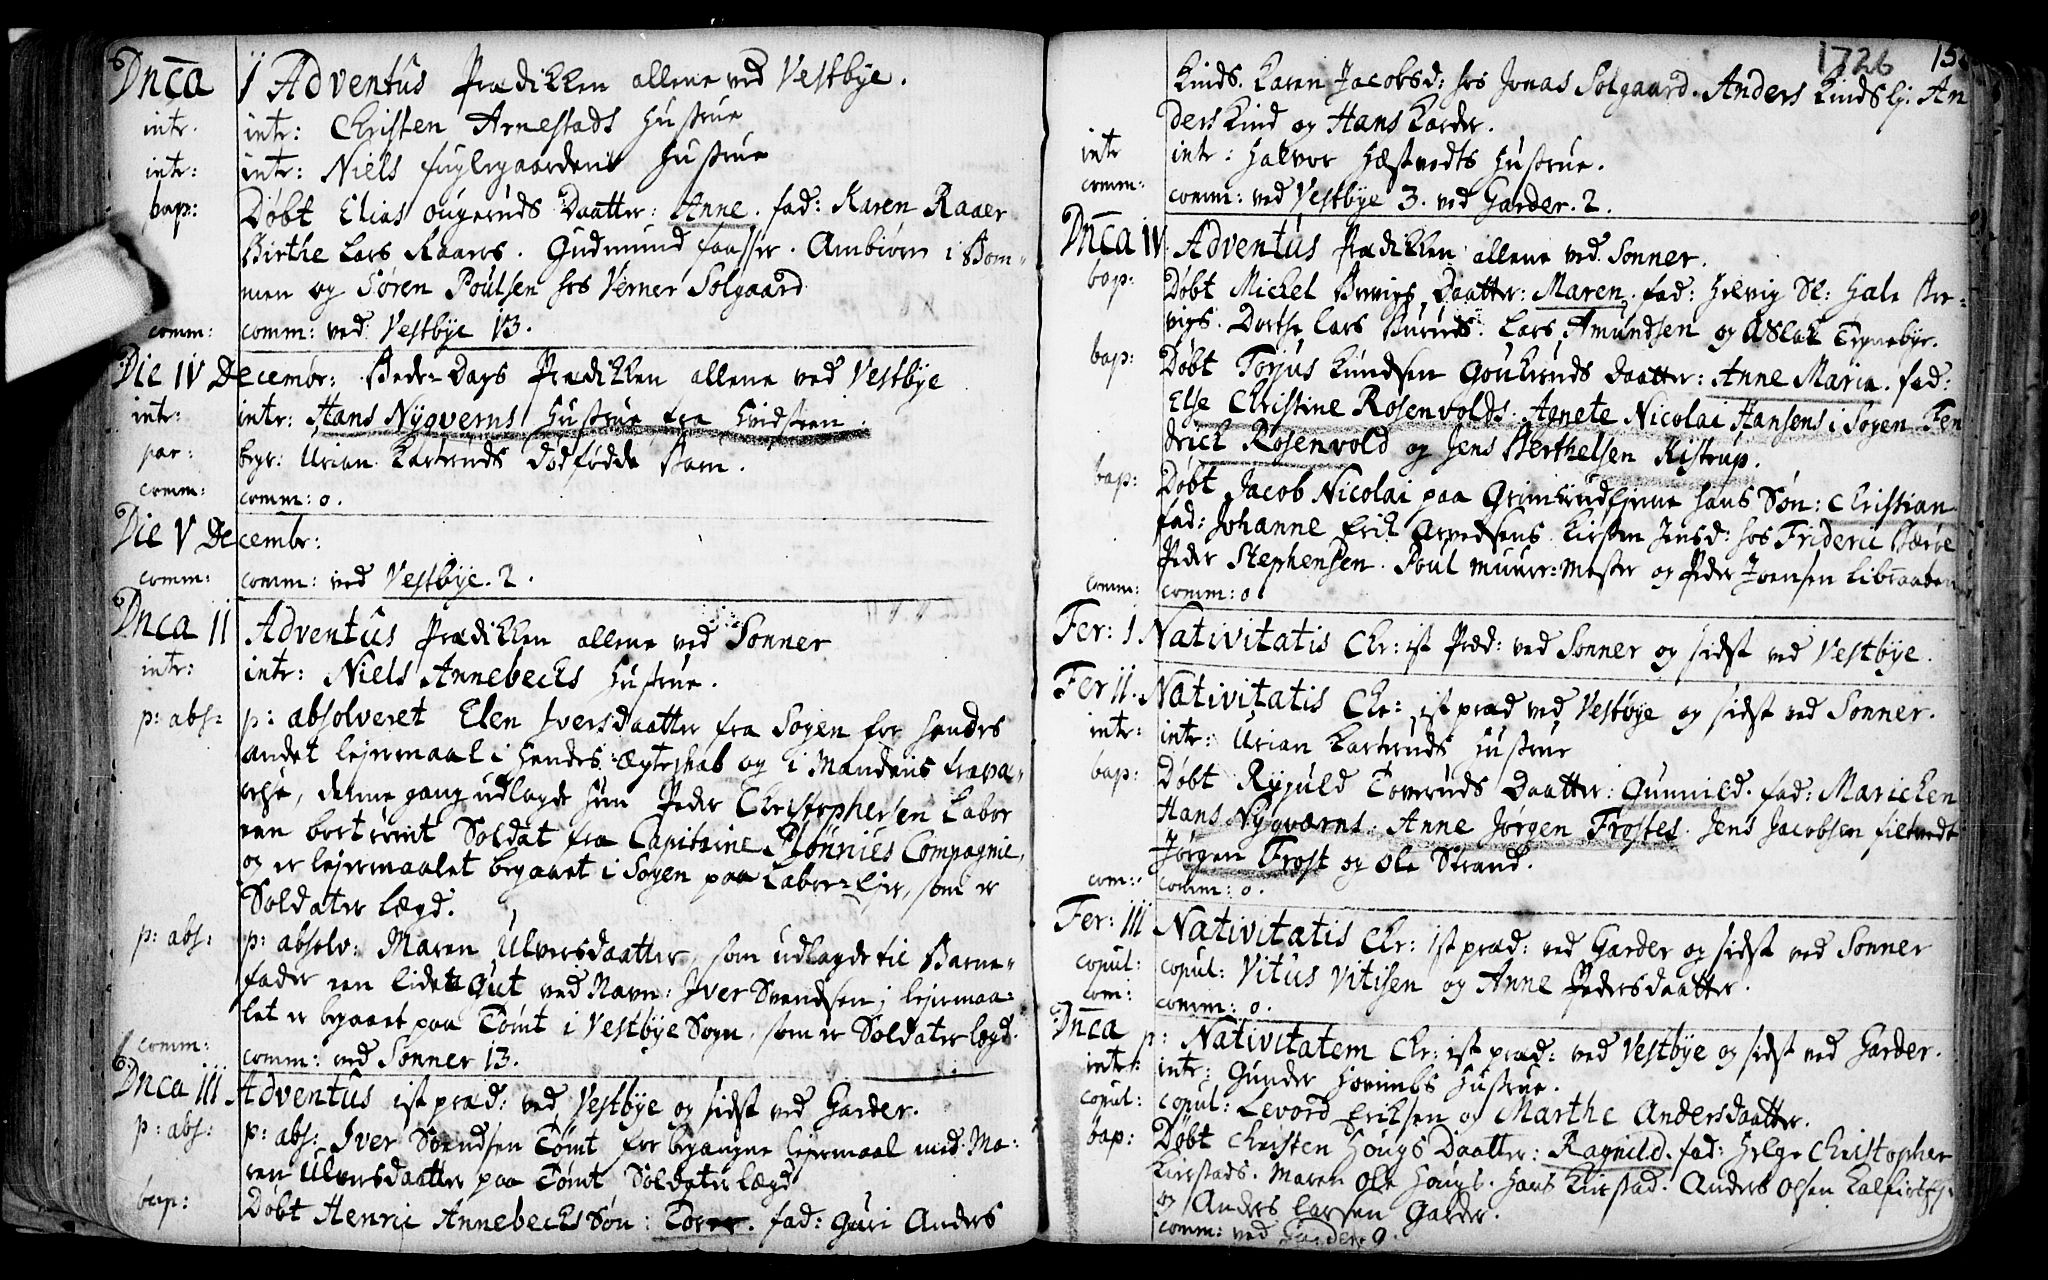 Dnca I Adventus Prædikken allene ved Vestbye.
intr. intr: Christen Arnestads Hustrue
intr: intr: Niels fuglegaardens Hustrue
bap: Døbt Elias ougeruds Daatter: Anne. fad: Karen Raaer
Birthe Lars Raaers. Gudmund faasser. Ambiörn i Bom-
men og Søren Poulsen hos Verner Solgaard
comm: comm: ved Vestbye 13.
Die IV Decembr: Bede-Dags Prædikken allene ved Vestbye
intr: intr: Hans Nyqverns Hustrue fra Hvidsteen.
par: begr: Urian Karteruds dødfødde Barn.
comm: comm: 0.
Die V Decembr:
comm: comm: ved Vestbye. 2.
Dnca II Adventus Prædikken allene ved Sonner
intr: intr: Niels Annebecks Hustrue.
p: abs: p: absolveret Elen Iversdaatter fra Sogen for hendes
andet lejermaal i hendes Ægteskab og i Mandens fravæ-
relse, denne gang udlagde hun Peder Christophersen Laber
een bortrømt Soldat fra Capitaine Plönnies Compagnie,
og er lejermaalet begaaet i Sogen paa Laber-Ejer, som er
Soldater lægd.
p: abs: p: absolv: Maren Ulversdaatter, som udlagde til Barne-
fader een liden Gut ved Navn: Iver Svendsen, lejermaa-
let er begaaet paa Tömt i Vestbye Sogn, som er Soldater lægd.
comm: comm: ved Sonner 13.
Dnca III Adventus ist præd: ved Vestbye og sidst ved Garder.
p: abs: p: abs: Iver Svendsen Tömt for begangne lejermaal med Ma-
ren Ulversdaatter paa Tömt Soldater lægd
bap: Døbt Henric Annebecks Søn: . fad: Guri Anders
1726 15
Kinds. Karen Jacobsd: hos Jonas Solgaard. Anders Kinds Ej. An
ders Kind og Hans Karder.
intr intr: Halvor Hæstvedts Hustrue.
comm: comm: ved Vestbye 3. ved Garder. 2.
Dnca IV Adventus Prædikken allene ved Sonner.
bap: Døbt Michel Brevigs Daatter: Maren. fad: Helvig Sl: Hale Bre-
vigs. Dorthe Lars Bururds. Lars Amundsen og Aslak Tegnebye.
bap: Døbt Torjus Knudsen Goukeruds Daatter: Anne Maria. fad:
Else Christine Rosenvolds. Agnete Nicolai Hansens i Sogen. Fen
drich Rosenvold og Jens Berthelsen Ristrup.
bap: Døbt Jacob Nicolai paa Grimsrud Ejerne hans Søn: Christian
fad: Johanne Erik Arvedsens. Kirsten Jensd: hos Frideric Bærøe
Peder Stephensen. Poul Muur-Mester og Peder Joensen
comm: comm: 0
Fer: I Nativitatis Chr: ist Præd: ved Sonner og sidst ved Vestbye.
Fer II. Nativitatis Chr: ist præd ved Vestbye og sidst ved Sonner.
intr: intr: Urian Karteruds Hustrue
bap: Døbt Ryguld Toveruds Daatter: Gunnild. fad: Maricken
Hans Nyqværns. Anne Jørgen Frostes. Jens Jacobsen filtvedt
Jørgen Frost og Ole Strand.
com: comm: 0.
Fer: III Nativitatis Chr: ist præd: ved Garder og sidst ved Sonner
copul: copul: Vitus Vitisen og Anne Pedersdaatter.
com: comm: 0.
Dnca p: Nativitatem Chr: ist præd: ved Vestbye og sidst ved Garder.
intr: intr: Gunder Hovimbs Hustrue.
copul: copul: Levord Eriksen og Marthe Andersdaatter.
bap: Døbt Christen Hougs Daatter: Ragnild. fad: Helge Christopher
Kirstads. Maren Ole Hougs. Hans Kirstad. Anders Olsen
og Anders Larsen Garder.
comm: ved Garder. 9.